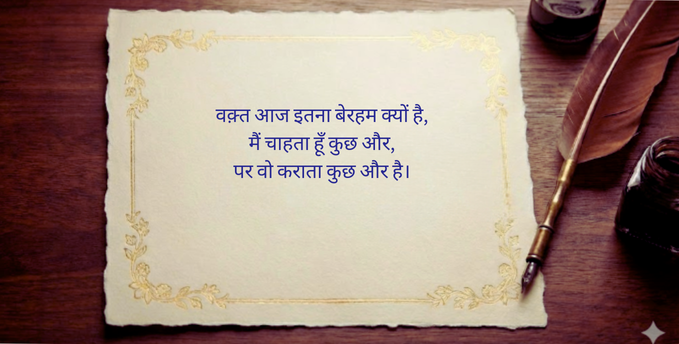 वक़्त आज इतना बेरहम क्यों है,
मैं चाहता हूँ कुछ और,
पर वो कराता कुछ और है।